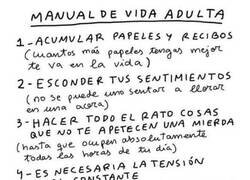 MANUAL DE VIDA ADULTA
1-ACUMULAR PAPELES Y RECIBOS
(cuantos más papeles tengas mejor
te va en la vida)
2-ESCONDER TUS SENTIMIENTOS
(no se puede uno sentar a llorar
en una acera)
3-HACER TODO EL RATO COSAS
QUE NO TE APETECEN UNA MIERDA
(hasta que ocupen absolutamente
todas las horas de tu día)
4-ES NECESARIA LA TENSIÓN
CONSTANTE